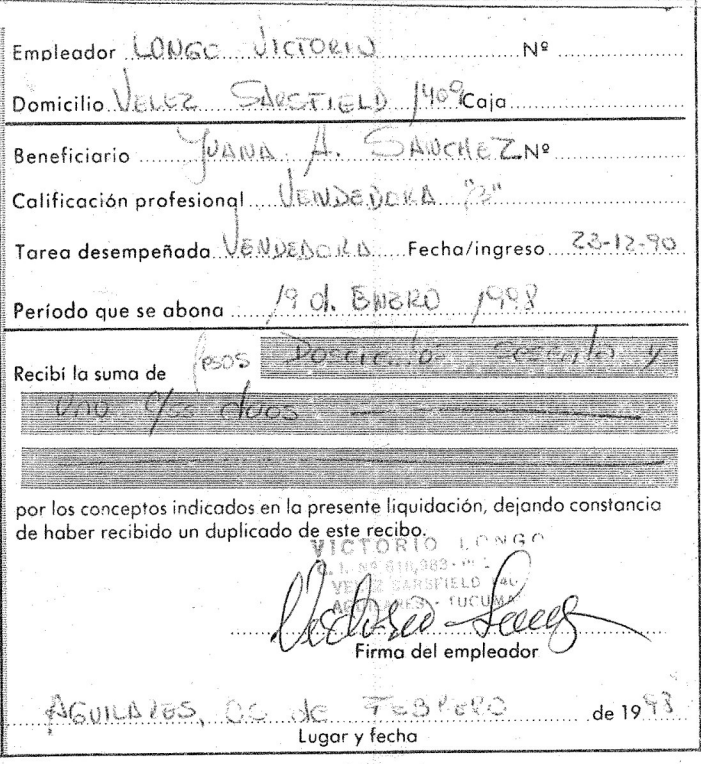 Empleador LONGO VICTORIO Nº
Domicilio VELEZ SARSFIELD 1409 Caja
Beneficiario JUANA A. SANCHEZ Nº
Calificación profesional VENDEDORA "B"
Tarea desempeñada VENDEDORA Fecha/ingreso 23-12-90
Período que se abona 19 d. ENERO 1998
Recibí la suma de Pesos Doscientos Sesenta y
Uno
por los conceptos indicados en la presente liquidación, dejando constancia
de haber recibido un duplicado de este recibo.
VICTORIO LONGO
VELEZ SARSFIELD
AGUILARES - TUCUMA
Victorio Longo
Firma del empleador
AGUILARES, de FEBRERO de 1998
Lugar y fecha